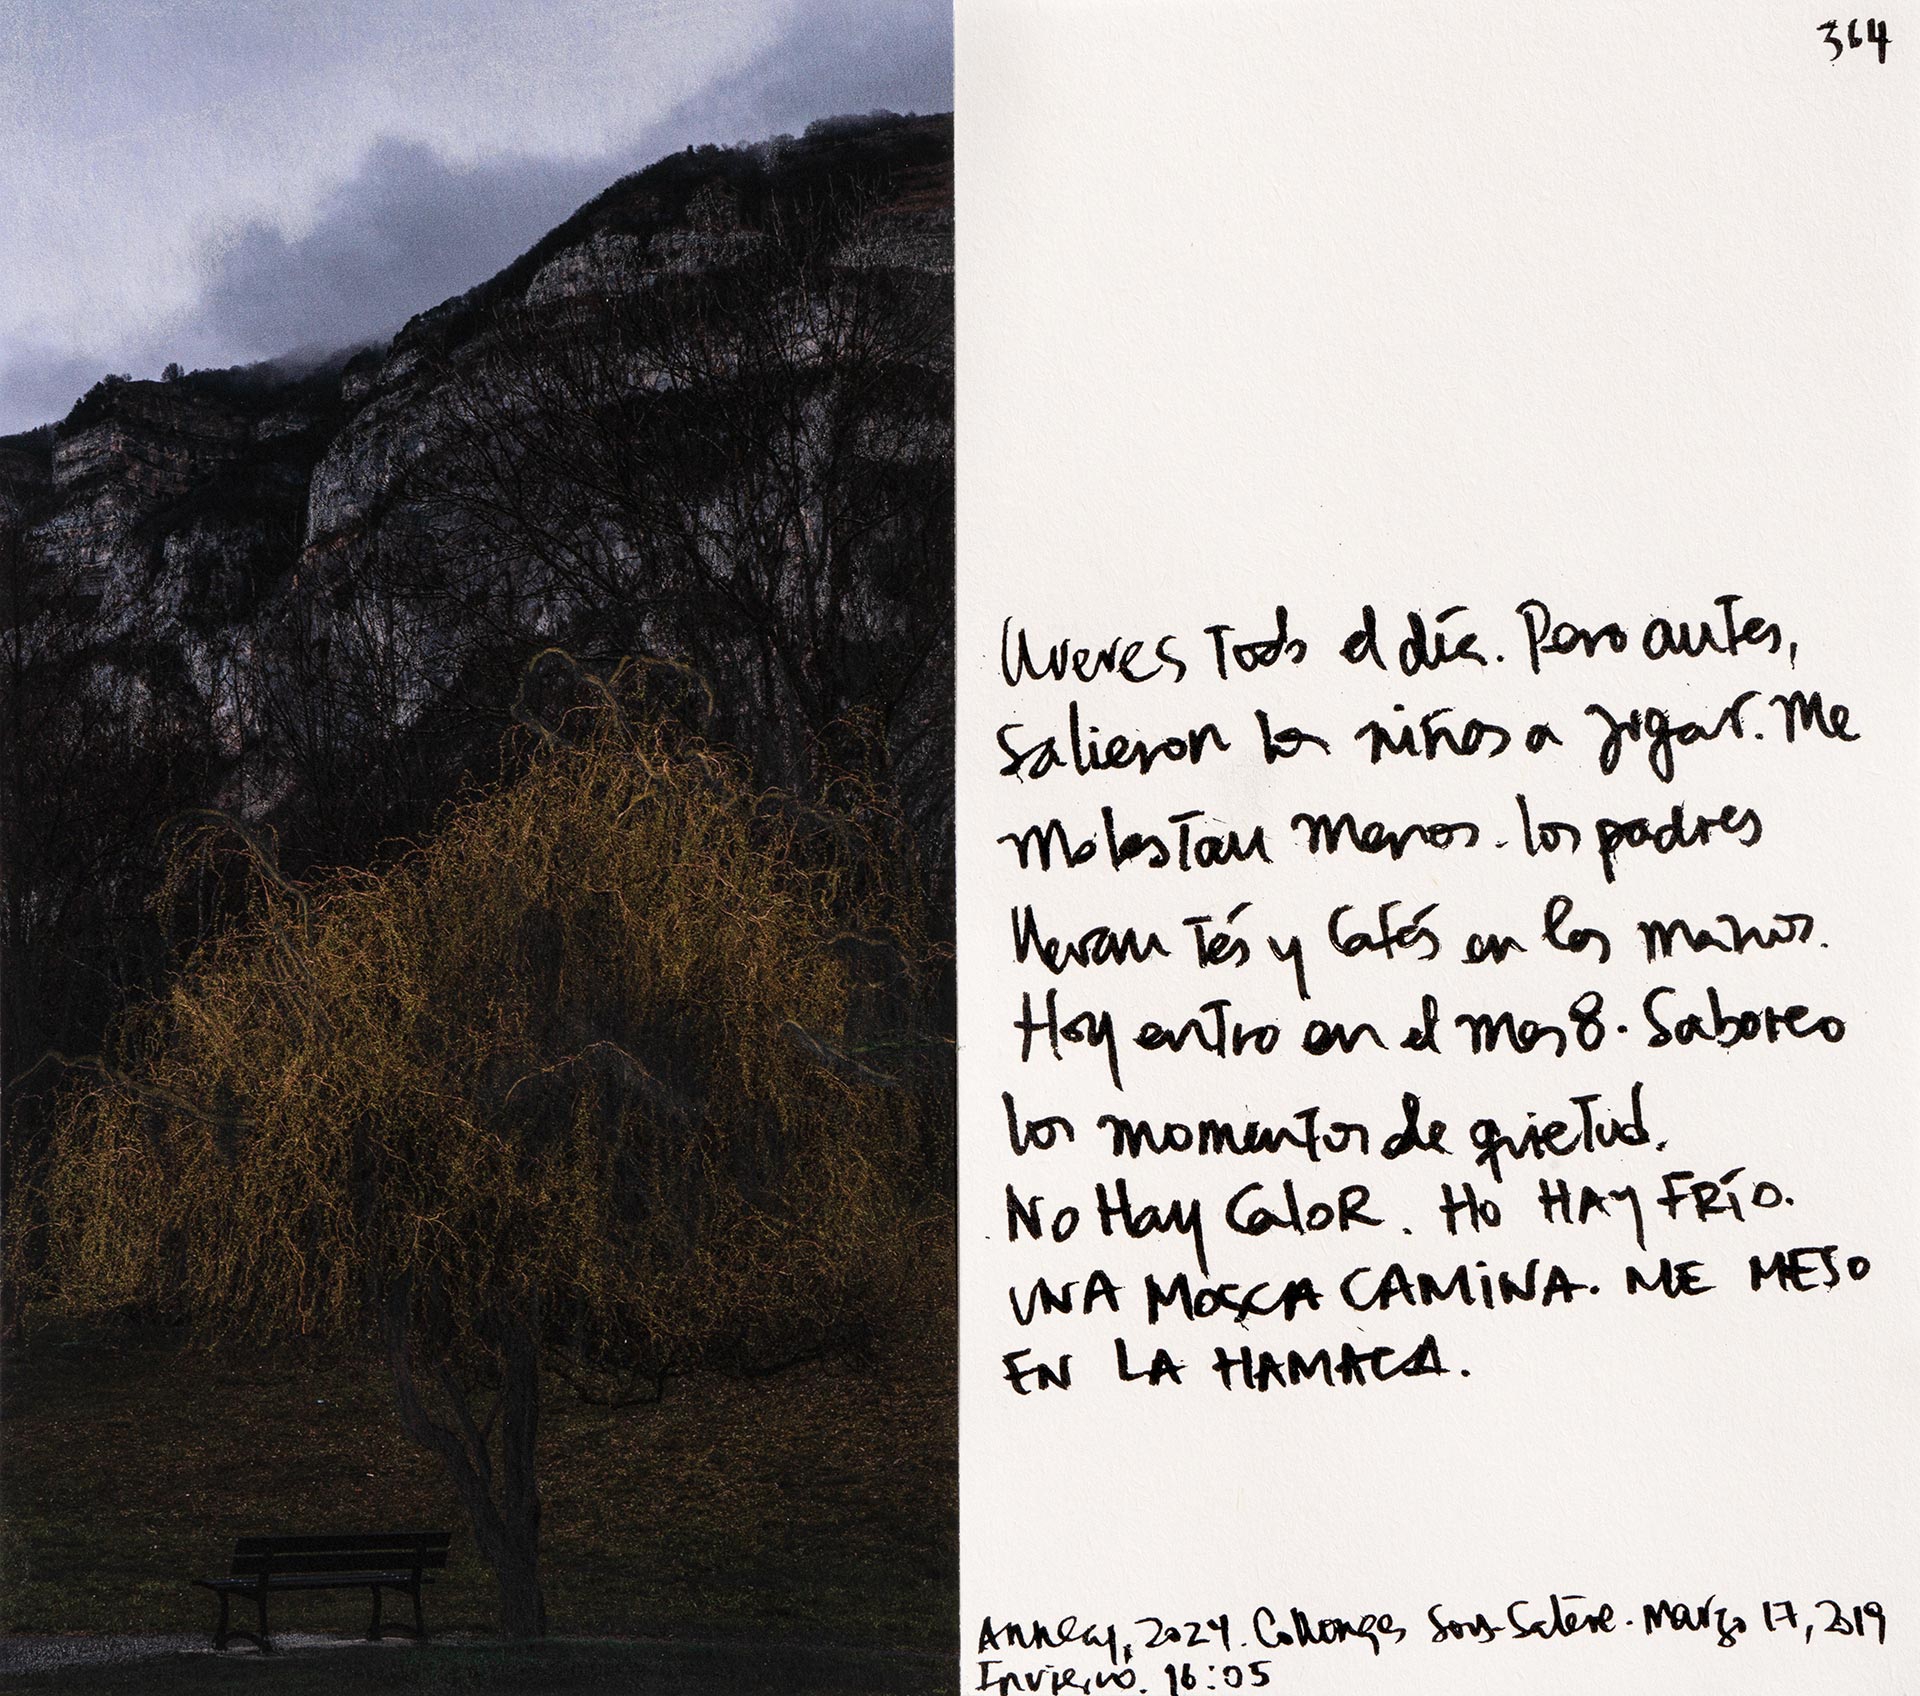 364
Llueves todo el día. Pero antes,
salieron los niños a jugar. Me
molestan menos. los padres
llevan tés y cafés en las manos.
Hoy entro en el mes 8. Saboreo
los momentos de quietud.
No Hay Calor. No HAY FRÍO.
UNA MOSCA CAMINA. ME MESO
EN LA HAMACA.
Annecy, 2024. Collonges Sous-Salève. Marzo 17, 2019
Invierno. 16:05